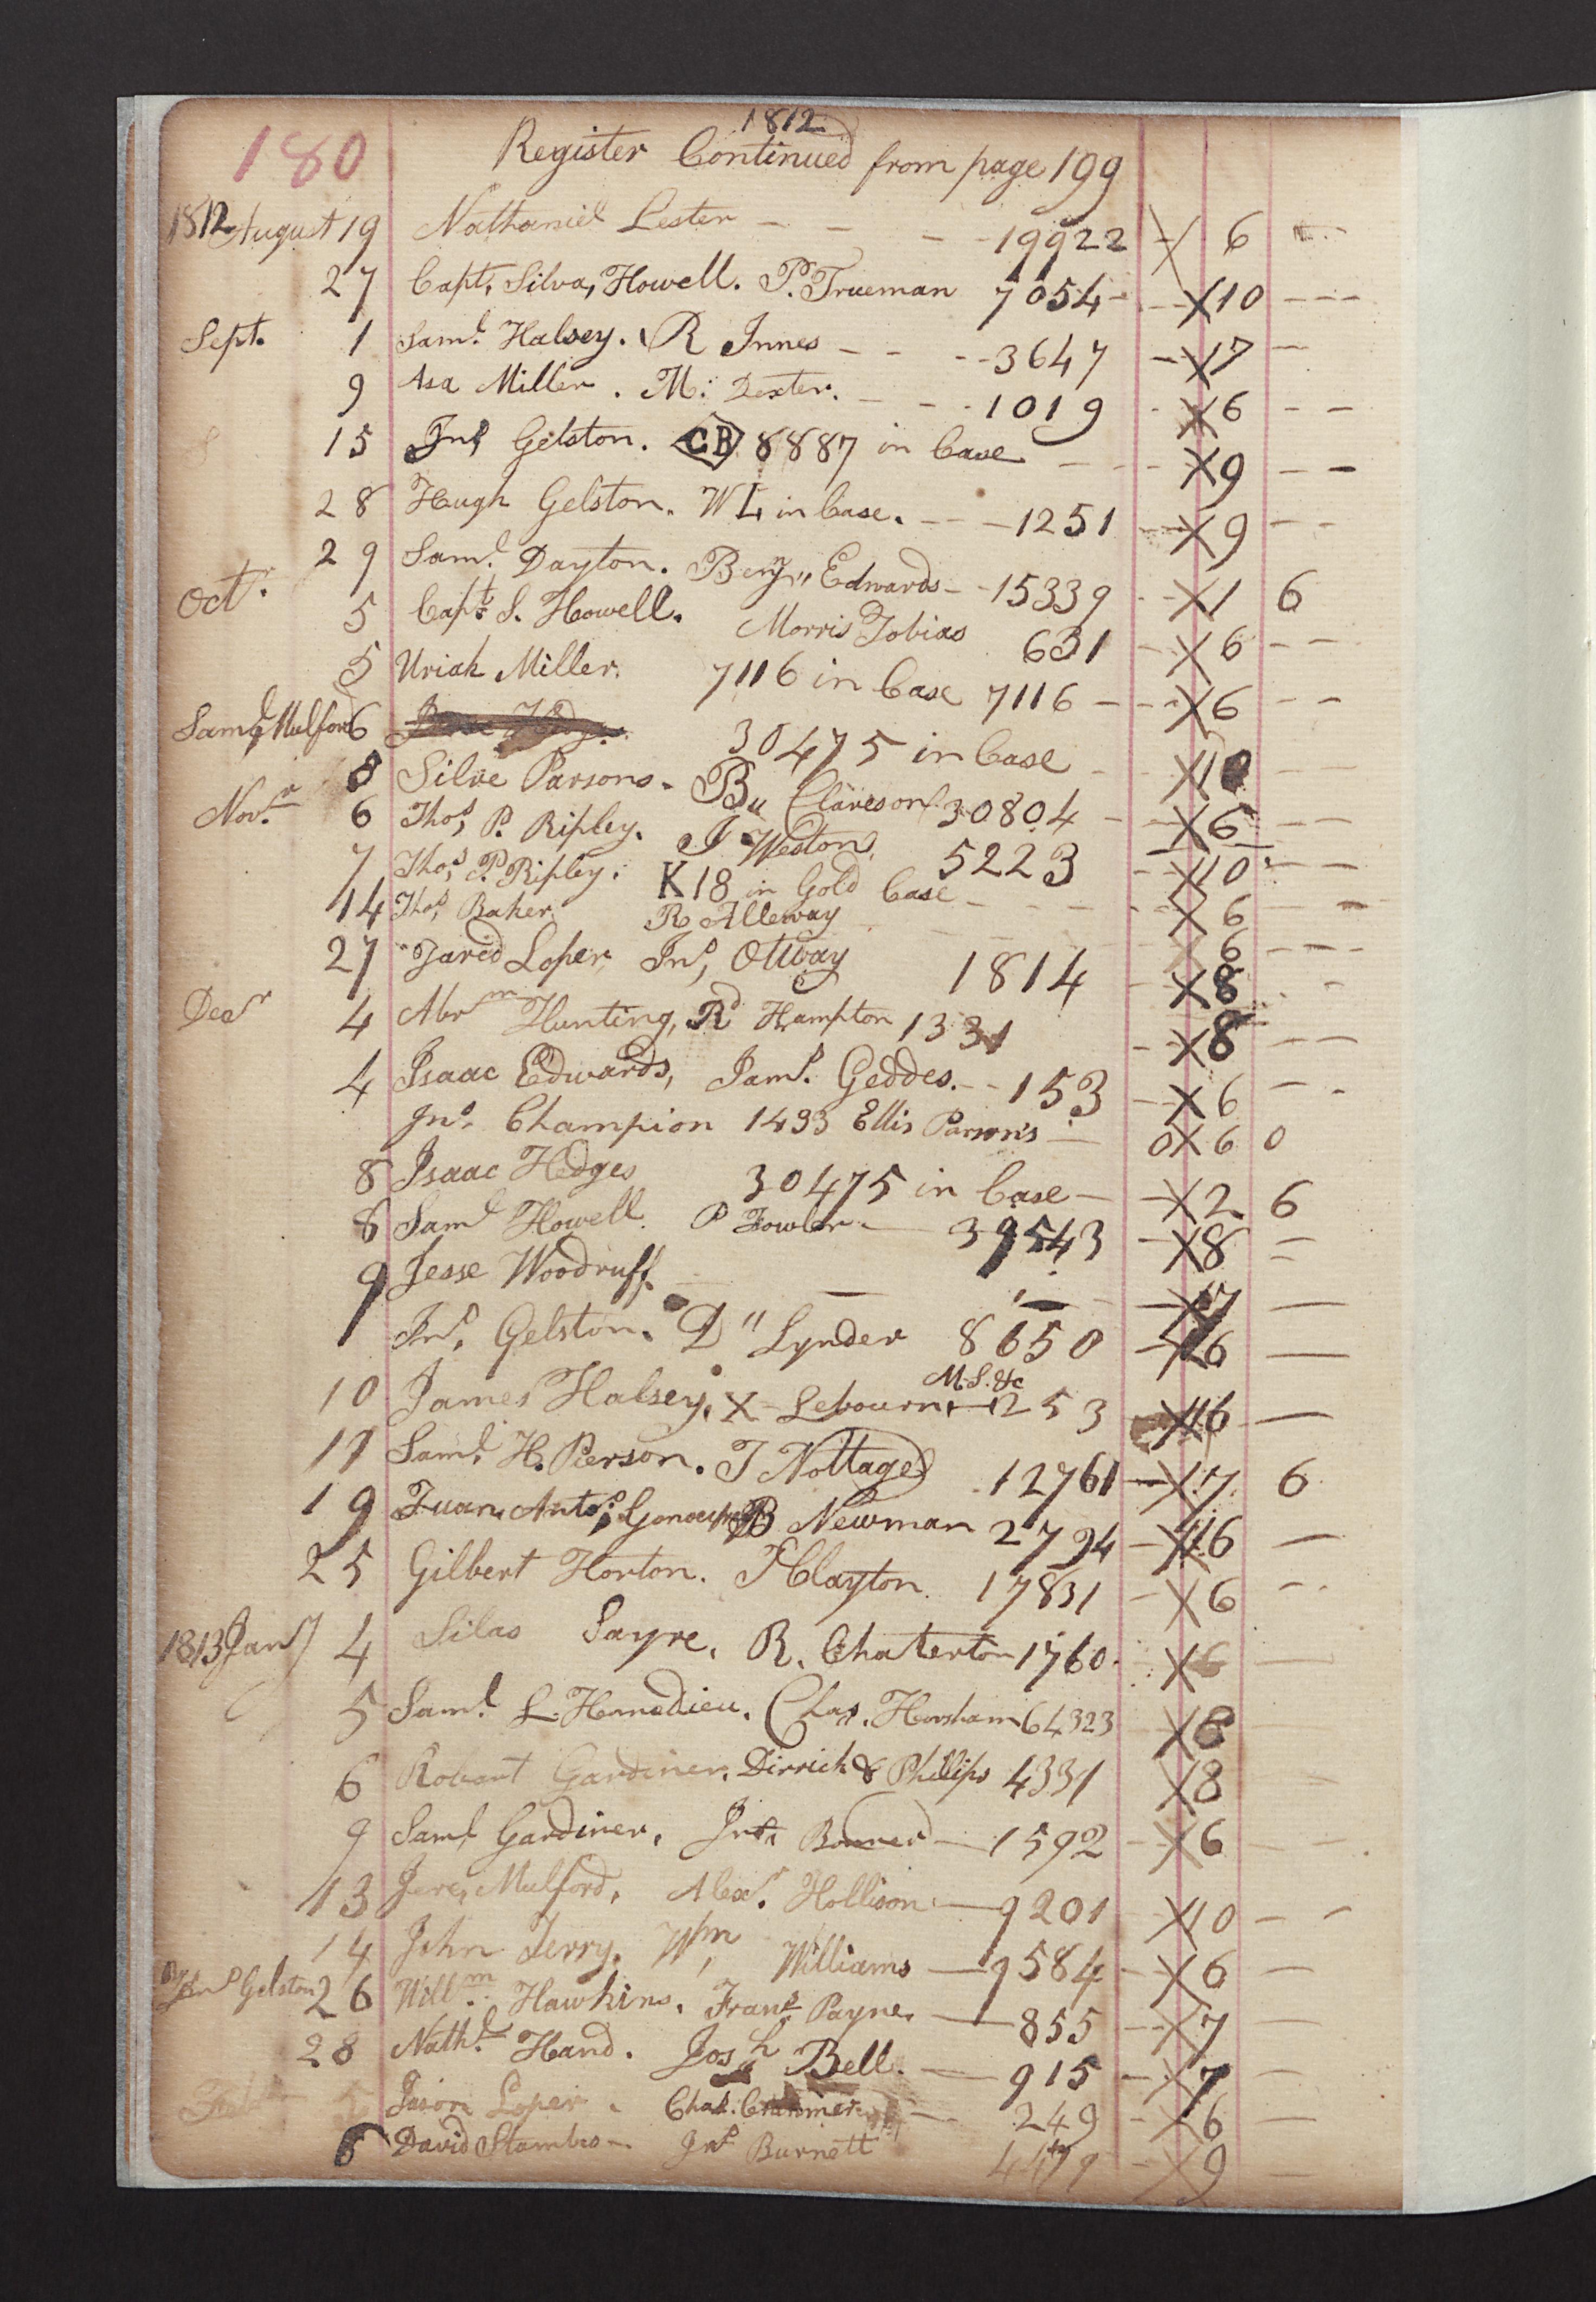 180
1812
Register Continued from page 199
1812 August 19 Nathaniel Lester - - - - 19922 - X 6 - -
27 Capt, Silva, Howell. P. Trueman 7054 - - X 10 - - -
Sept. 1 Saml. Halsey. R Innes - - - - 3647 - X 17 -
9 Asa Miller. M: Dexter. - - - 1019 - X 6 - -
15 Jno, Gelston. CB 8887 in Case - - - X 9 - -
28 Hugh Gelston. W L in Case. - - - 1251 - X 9 - -
29 Saml. Dayton. Benjn Edwards - - 15339 - - X 1 6
Octr. 5 Capt. S. Howell. Morris Tobias 631 - X 6 - -
5 Uriah Miller. 7116 in Case 7116 - - - X 6 - -
Saml, Mulford 6 30475 in Case - X 10 - -
8 Silve Parsons. B,, Clareson 30804 - - X 6 - -
Novr. 6 Thos, P. Ripley. J Weston, 5223 - X 10 - -
7 Thos, P. Ripley: K 18 in Gold Case - - - - X 6 - -
14 Thos, Baker R Alleway X 6 - - -
27 Jared Loper, Jno, Otway 1814 - X 8 - -
Decr 4 Abrm Hunting, Rd Hampton 1331 - X 8 - -
4 Isaac Edwards, Jams. Geddes. - - 153 - X 6 - -
Jno. Champion 1433 Ellis Parsons - 0 X 6 0
8 Isaac Hedges 30475 in Case - - X 2 6
8 Saml Howell. P Fowler - 39543 - X 8 =
9 Jesse Woodruff - - - X 17 -
Jno. Gelston. D" Lynder 8650 - X 6 -
M.S. &c
10 James Halsey. X - Lebourn 1253 X 16 -
11 Saml. H. Pierson. J Nottage 12761 - X 17 6
19 Juan, Anto; B Newman 2794 - X 16 -
25 Gilbert Horton. J Clayton. 17831 - X 6 - -
1813 Jany 4 Silas Sayre. R. Chaterton 1760. X 6 -
5 Saml. L. Homedieu. Chas. Horsham 64323 X 8
6 Robart Gardiner. Dirrich & Phillips 4331 X 8
9 Saml Gardiner, Jno, Bonner - 1592 - X 6 -
13 Jere, Mulford, Alexr. Hollison - 9201 - X 10 - -
14 John Terry. Wm, Williams - 9584 - X 6 -
Jno Gelston 26 Willm. Hawkins. Frans. Payne. - 855 - X 7 -
28 Nathl. Hand. Josh Bell. - 915 - X 7 -
Jason Loper. Chas. - 249 - X 6 -
6 David Stambro - Jno Burnett - X 9 -